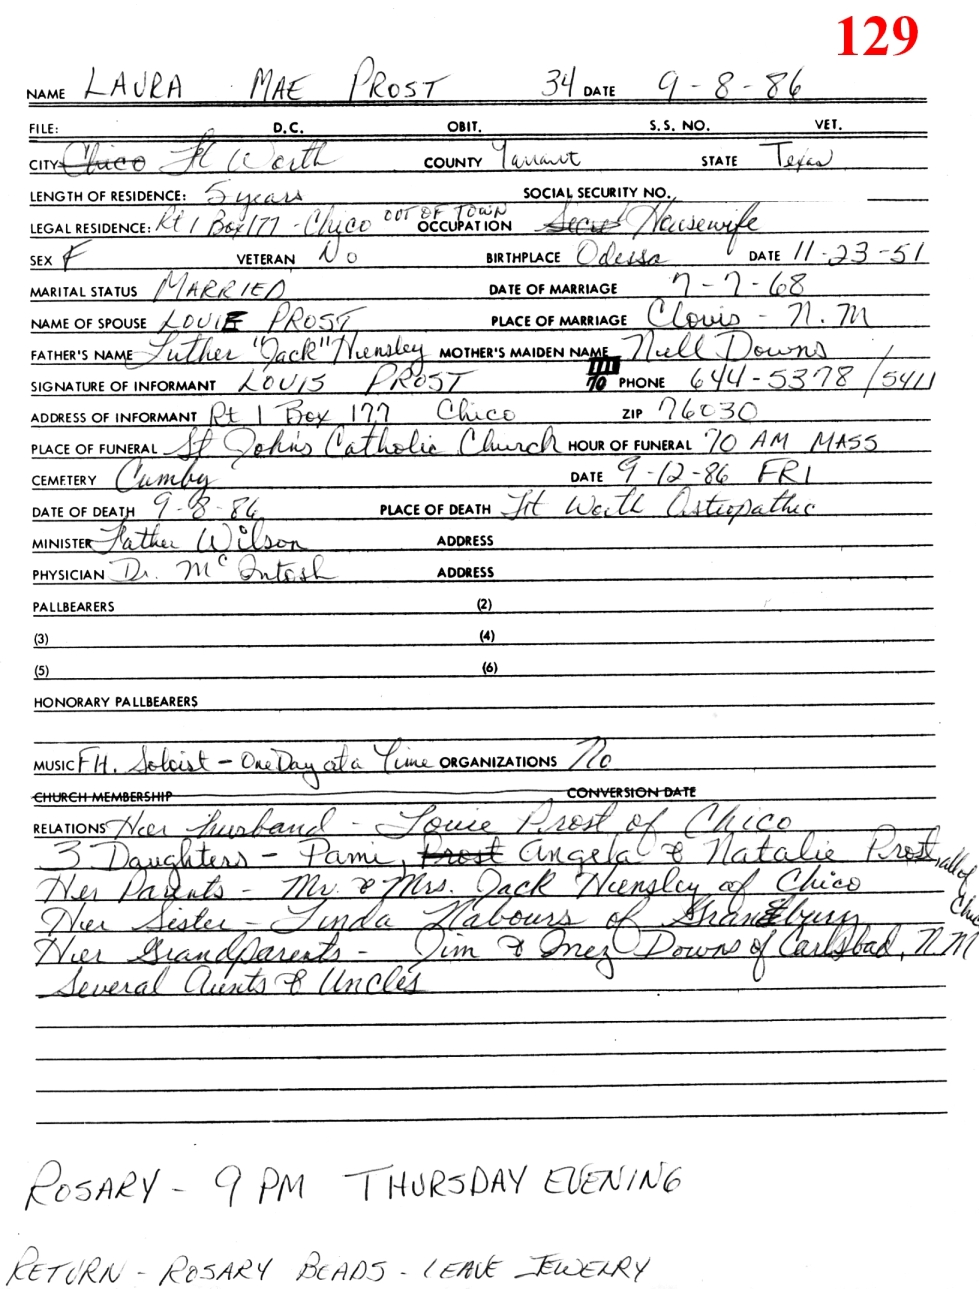 129
NAME LAURA MAE PROST 34 DATE 9-8-86
FILE: D.C. OBIT. S.S. NO. VET.
CITY Chico Ft Worth COUNTY Tarrant STATE Texas
LENGTH OF RESIDENCE: 5 years SOCIAL SECURITY NO.
LEGAL RESIDENCE: Rt 1 Box 177 - Chico OUT OF TOWN OCCUPATION Housewife
SEX F VETERAN No BIRTHPLACE Odessa DATE 11-23-51
MARITAL STATUS MARRIED DATE OF MARRIAGE 7-7-68
NAME OF SPOUSE LOUIE PROST PLACE OF MARRIAGE Clovis - N.M
FATHER'S NAME Luther "Jack" Hensley MOTHER'S MAIDEN NAME Nell Downs
SIGNATURE OF INFORMANT LOUIS PROST PHONE 644-5378 / 5411
ADDRESS OF INFORMANT Rt 1 Box 177 Chico ZIP 76030
PLACE OF FUNERAL St John's Catholic Church HOUR OF FUNERAL 10 AM MASS
CEMETERY Cumby DATE 9-12-86 FRI
DATE OF DEATH 9-8-86 PLACE OF DEATH Ft Worth Osteopathic
MINISTER Father Wilson ADDRESS
PHYSICIAN Dr. McIntosh ADDRESS
PALLBEARERS (2)
(3) (4)
(5) (6)
HONORARY PALLBEARERS
MUSIC FH. Soloist - One Day at a Time ORGANIZATIONS No
CHURCH MEMBERSHIP CONVERSION DATE
RELATIONS Her husband - Louie Prost of Chico
3 Daughters - Pami, Prost Angela & Natalie Prost, all of Chico
Her Parents - Mr. & Mrs. Jack Hensley of Chico
Her Sister - Linda Nabours of Grandbury
Her Grandparents - Jim & Inez Downs of Carlsbad, N.M
Several Aunts & Uncles
ROSARY - 9 PM THURSDAY EVENING
RETURN - ROSARY BEADS - LEAVE JEWELRY